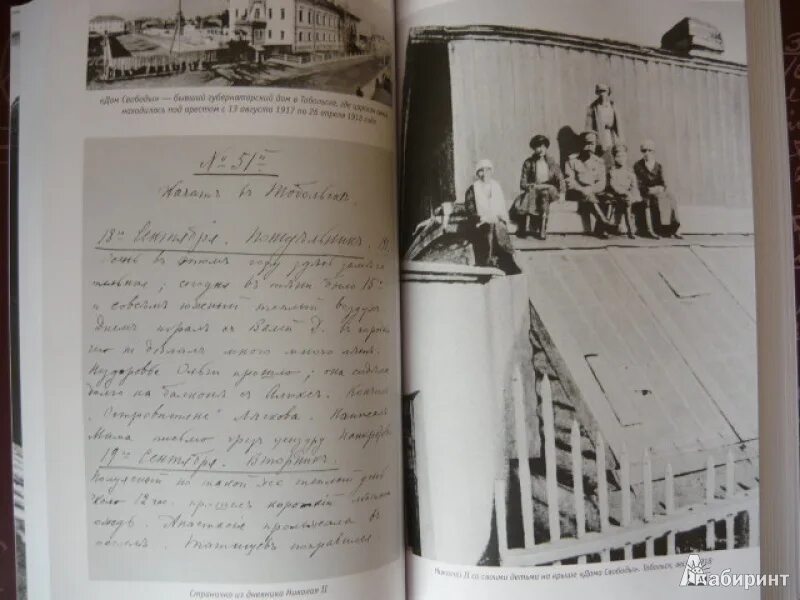 «Дом Свободы» — бывший губернаторский дом в Тобольске, где царская семья
находилась под арестом с 13 августа 1917 по 26 апреля 1918 года
№ 51й
Начатъ въ Тобольскѣ.
18го Сентября. Понедѣльникъ.
Осень въ этомъ году здѣсь замѣча
тельная; сегодня въ тѣни было 15°
и совсѣмъ южный теплый воздухъ
Днемъ игралъ съ Валей Д. въ городки
чего не дѣлалъ много много лѣтъ.
Нездоровье Ольги прошло; она сидѣла
долго на балконѣ съ Аликсъ. Кончилъ
„Островитяне" Лѣскова. Написалъ
Мама письмо чрезъ цензуру
19го Сентября. Вторникъ.
такой же теплый день
12 час. прошелъ короткій
Анастасіи
Татищевъ поправился.
Страница из дневника Николая II
Николай II со своими детьми на крыше «Дома Свободы». Тобольск, 1918
Лабиринт